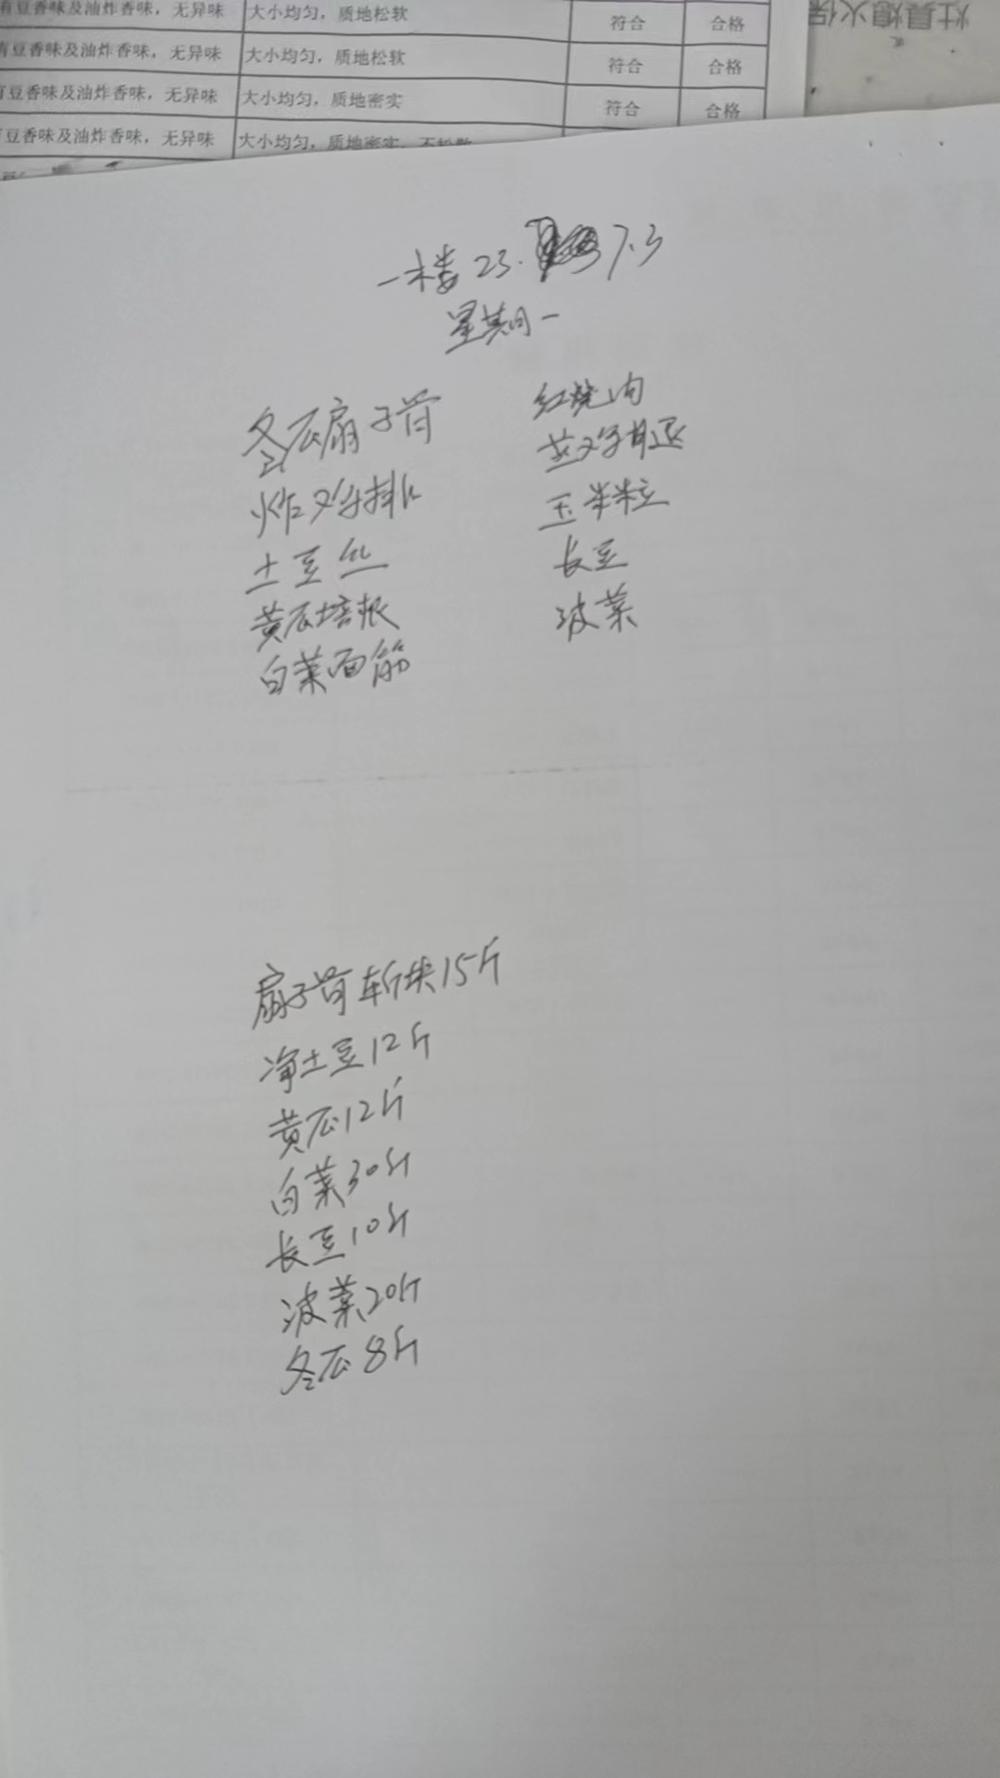 有豆香味及油炸香味，无异味 大小均匀，质地松软 符合 合格
有豆香味及油炸香味，无异味 大小均匀，质地松软 符合 合格
有豆香味及油炸香味，无异味 大小均匀，质地密实 符合 合格
豆香味及油炸香味，无异味 大小均匀，质地密实，不松散
灶具熄火保
一楼 23. 7.3
星期一
冬瓜扇子骨
炸鸡排
土豆丝
黄瓜培根
白菜面筋
红烧肉
玉米粒
长豆
波菜
扇子骨斩块15斤
净土豆12斤
黄瓜12斤
白菜30斤
长豆10斤
波菜20斤
冬瓜8斤